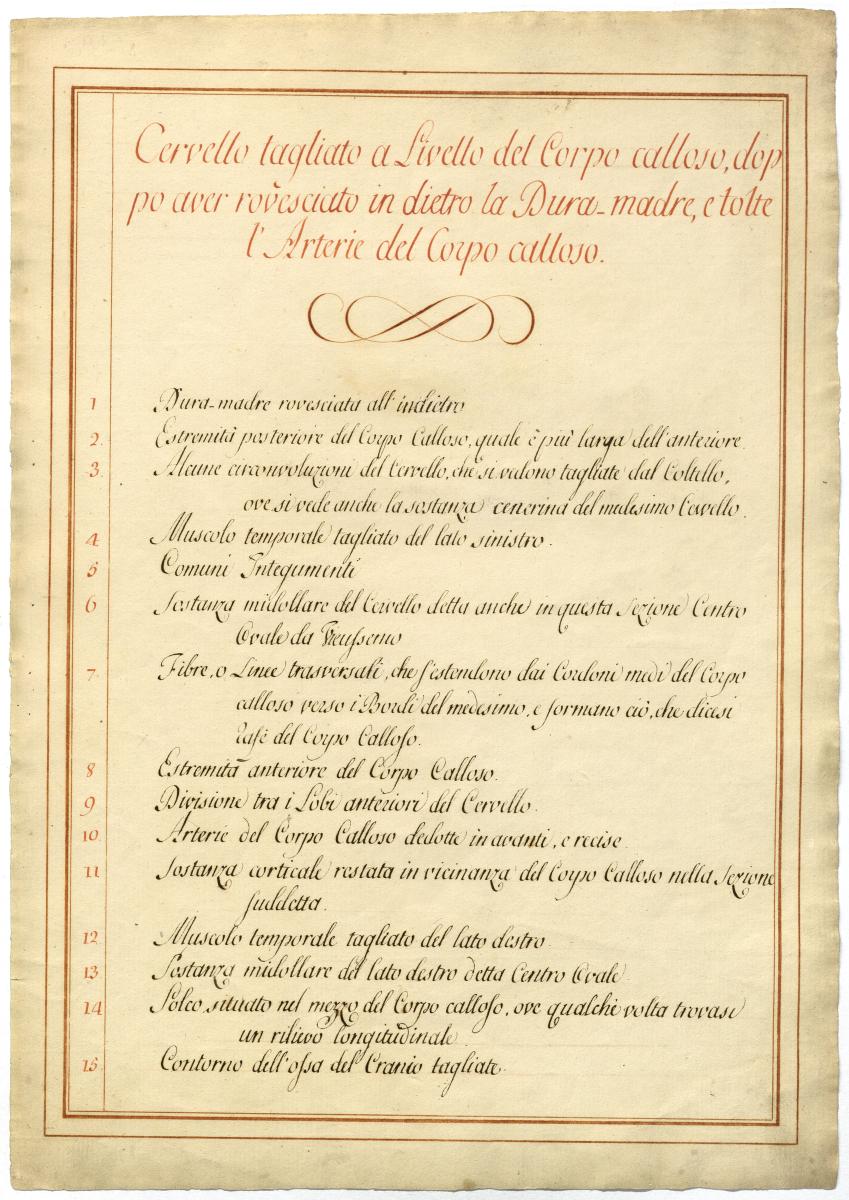 Cervello tagliato a Livello del Corpo calloso, dop
po aver rovesciato in dietro la Dura-madre, e tolte
l'Arterie del Corpo calloso.
1 Dura-madre rovesciata all'indietro
2. Estremità posteriore del Corpo Calloso, quale è più larga dell'anteriore.
3. Alcune circonvoluzioni del Cervello, che si vedono tagliate dal Coltello,
ove si vede anche la sostanza cenerina del medesimo Cervello.
4 Muscolo temporale tagliato del lato sinistro.
5 Comuni Integumenti
6 Sostanza midollare del Cervello detta anche in questa Sezione Centro
Ovale da
7 Fibre, o Linee trasversali, che s'estendono dai Cordoni medi del Corpo
calloso verso i Bordi del medesimo, e formano ciò, che dicesi
del Corpo Calloso.
8 Estremità anteriore del Corpo Calloso.
9 Divisione tra i Lobi anteriori del Cervello.
10 Arterie del Corpo Calloso dedotte in avanti, e recise.
11 Sostanza corticale restata in vicinanza del Corpo Calloso nella Sezione
suddetta.
12 Muscolo temporale tagliato del lato destro.
13 Sostanza midollare del lato destro detta Centro Ovale.
14 Solco situato nel mezzo del Corpo calloso, ove qualche volta trovasi
un rilievo longitudinale.
15 Contorno dell'ossa del Cranio tagliate.